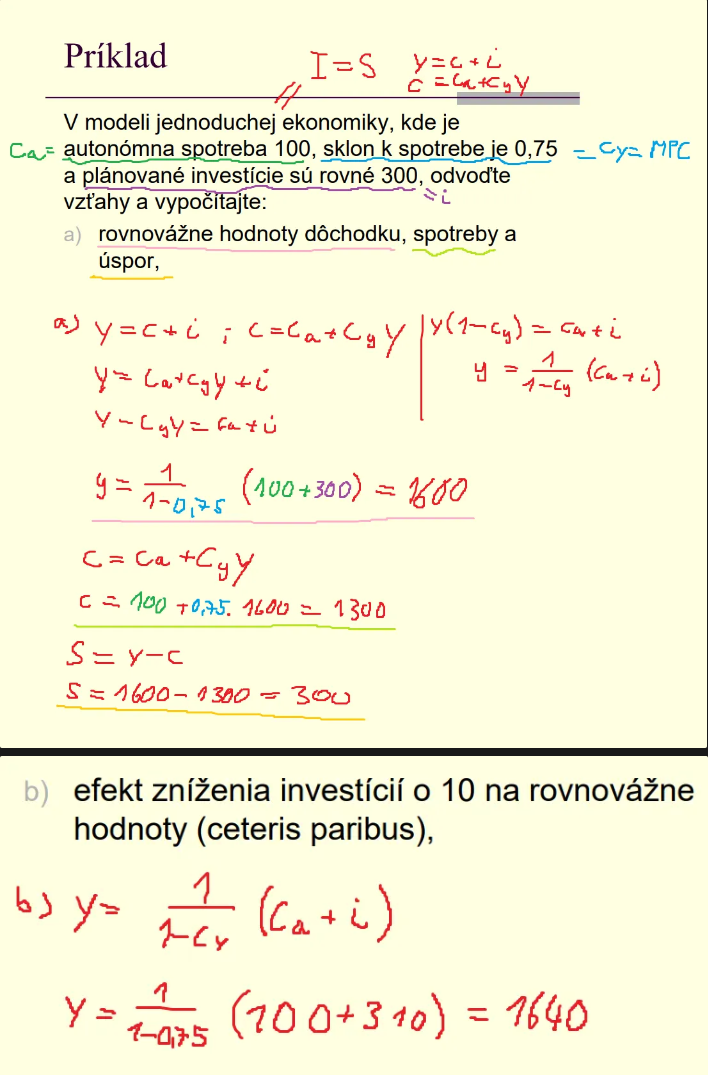 Príklad
I=S
y=c+i
c=ca+cyY
V modeli jednoduchej ekonomiky, kde je
Ca= autonómna spotreba 100, sklon k spotrebe je 0,75 = Cy= MPC
a plánované investície sú rovné 300, odvoďte
= i
vzťahy a vypočítajte:
a) rovnovážne hodnoty dôchodku, spotreby a
úspor,
a) y=c+i ; c=ca+cyY
y=ca+cyy+i
y-cyy=ca+i
y(1-cy)=ca+i
y = 1/1-cy (ca+i)
y = 1/1-0,75 (100+300) = 1600
c = ca+cyy
c = 100 +0,75. 1600 = 1300
S = y-c
S = 1600-1300 = 300
b) efekt zníženia investícií o 10 na rovnovážne
hodnoty (ceteris paribus),
b) y= 1/1-cy (ca+i)
y= 1/1-0,75 (100+310) = 1640